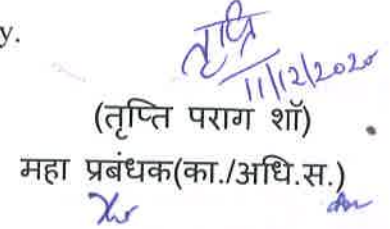 y.
तृप्ति
11/12/2020
(तृप्ति पराग शॉ)
महा प्रबंधक(का./अधि.स.)